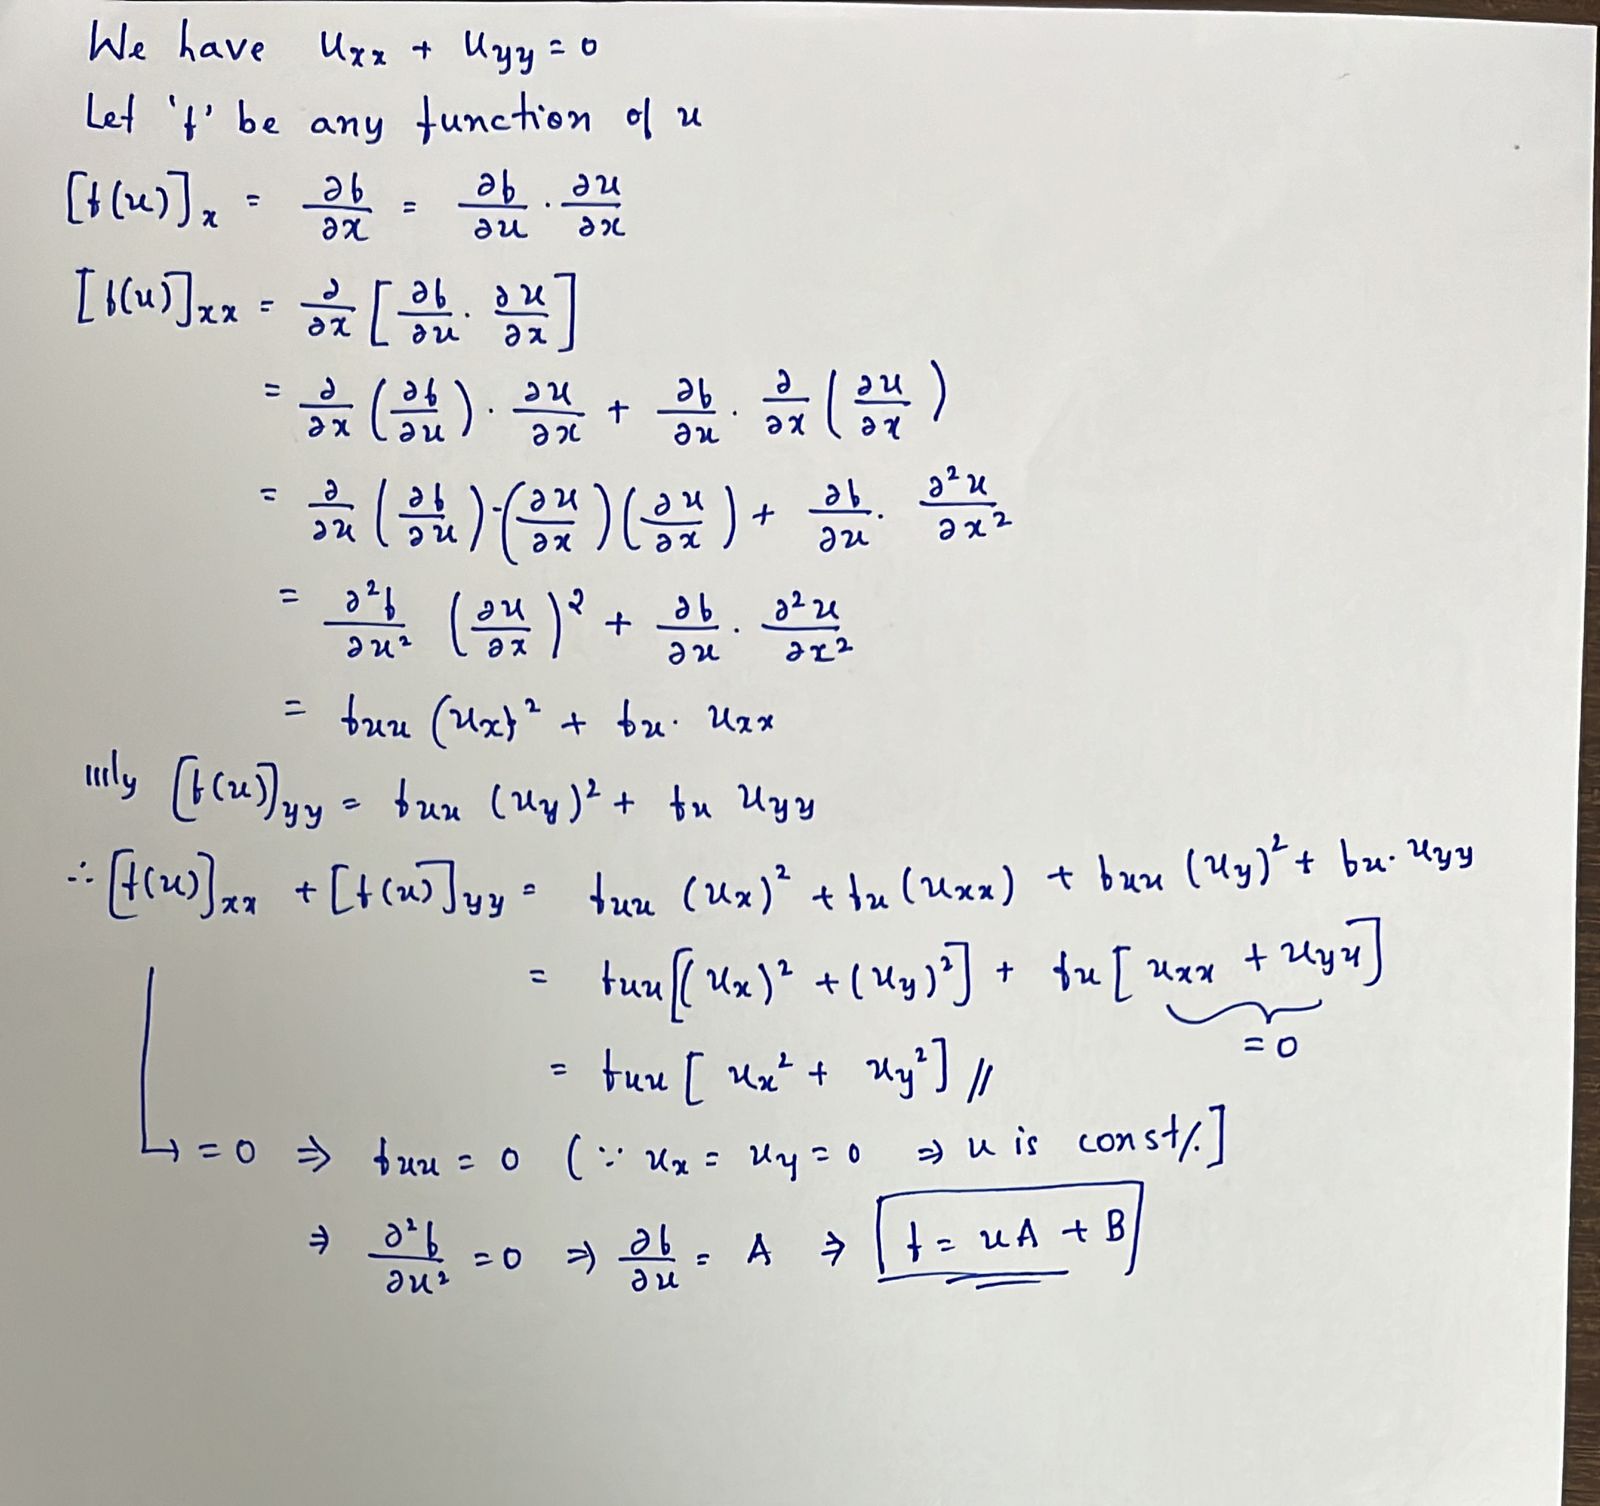 We have uxx + uyy = 0
Let 'f' be any function of u
[f(u)]x = ∂f/∂x = ∂f/∂u · ∂u/∂x
[f(u)]xx = ∂/∂x [∂f/∂u · ∂u/∂x]
= ∂/∂x (∂f/∂u) · ∂u/∂x + ∂f/∂u · ∂/∂x (∂u/∂x)
= ∂/∂u (∂f/∂u) · (∂u/∂x) (∂u/∂x) + ∂f/∂u · ∂²u/∂x²
= ∂²f/∂u² (∂u/∂x)² + ∂f/∂u · ∂²u/∂x²
= fuu (ux)² + fu · uxx
lllly [f(u)]yy = fuu (uy)² + fu uyy
∴ [f(u)]xx + [f(u)]yy = fuu (ux)² + fu (uxx) + fuu (uy)² + fu · uyy
= fuu [(ux)² + (uy)²] + fu [uxx + uyy]
= 0
= fuu [ux² + uy²] //
↳ = 0 ⇒ fuu = 0 (∵ ux = uy = 0 ⇒ u is const/.]
⇒ ∂²f/∂u² = 0 ⇒ ∂f/∂u = A ⇒ f = uA + B